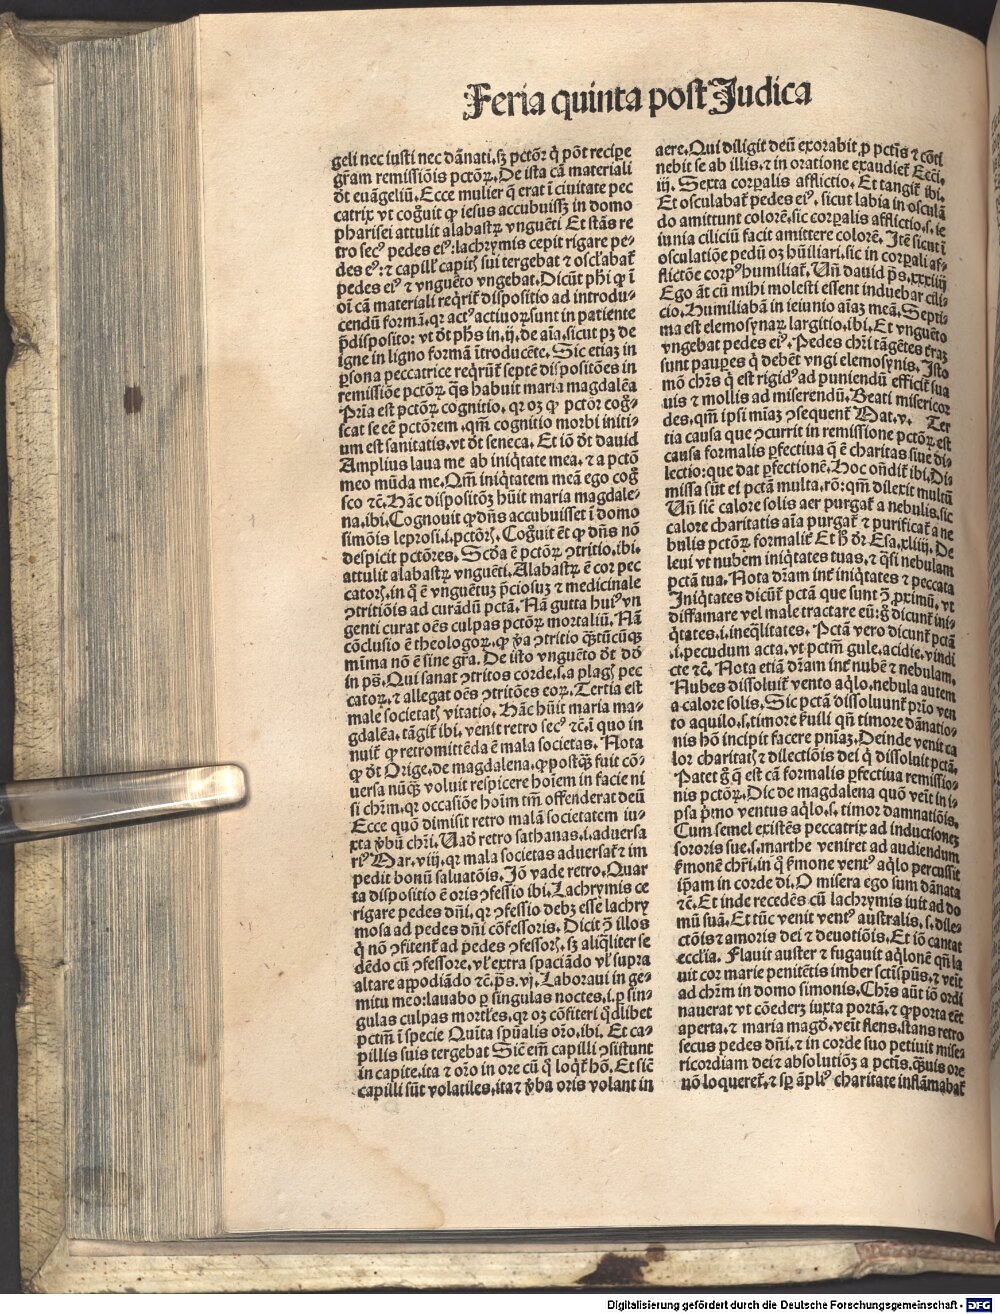 Feria quinta post Judica
geli nec iusti nec dãnati.sꝫ pctõꝛ q̃ põt recipe
gr̃am remissiõis pctõꝝ.De ista cã materiali
dt̃ euãgeliũ.Ecce mulier q̃ erat ĩ ciuitate pec
catrix vt cog̃uit ꝙ iesus accubuissꝫ in domo
pharisei attulit alabastꝝ vnguẽti Et stãs re
tro secꝰ pedes eiꝰ:lachrymis cepit rigare pe⸗
des eꝰ:⁊ capill̃ capitꝭ sui tergebat ⁊ oscl̃abat̃
pedes eiꝰ ⁊ vnguẽto vngebat.Dicũt ph̃i ꝙ ĩ
oĩ cã materiali req̃rit̃ dispositio ad introdu⸗
cendũ formã.qꝛ actꝰ actiuoꝝ sunt in patiente
p̃disposito: vt dt̃ ph̃s in.ij.de aĩa.sicut pꝫ de
igne in ligno formã ĩtroducẽte.Sic etiaꝫ in
ꝑsona peccatrice req̃rũt̃ septẽ dispositões in
remissiõe pctõꝝ q̃s habuit maria magdalẽa
Pr̃ia est pctõꝝ cognitio.qꝛ oꝫ ꝙ pctõr cog̃⸗
scat se eẽ pctõrem.qm̃ cognitio morbi initi⸗
um est sanitatis.vt dt̃ seneca.Et iõ dt̃ dauid
Amplius laua me ab iniq̃tate mea.⁊ a pctõ
meo mũda me.Qm̃ iniq̃tatem meã ego cog̃
sco ⁊c̃.Hãc dispositõꝫ hũit maria magdale⸗
na.ibi.Cognouit ꝙ dñs accubuisset ĩ domo
simõis leprosi.i.pctõrꝭ.Cog̃uit ẽt ꝙ dñs nõ
despicit pctõres.Scd̃a ẽ pctõꝝ ꝯtritio.ibi.
attulit alabastꝝ vnguẽti.Alabastꝝ ẽ cor pec
catorꝭ.in q̃ ẽ vnguẽtuꝫ p̃ciosuꝫ ⁊ medicinale
ꝯtritiõis ad curãdũ pctã.Nã gutta huiꝰ vn
genti curat oẽs culpas pctõꝝ mortaliũ.Nã
cõclusio ẽ theologoꝝ.ꝙ ṽa ꝯtritio q̃stũcũqꝫ
mĩma nõ ẽ sine gr̃a.De isto vnguẽto dt̃ dd̃
in ps̃.Qui sanat ꝯtritos corde.s.a plagꝭ pec
catoꝝ.⁊ allegat oẽs ꝯtritões eoꝝ.Tertia est
male societatꝭ vitatio.Hãc hũit maria ma⸗
gdalẽa.tãgit̃ ibi.venit retro secꝰ ⁊c̃.ĩ quo in
nuit̃ ꝙ retromittẽda ẽ mala societas.Nota
ꝙ dt̃ Orige.de magdalena.ꝙ postq̃ꝫ fuit cõ⸗
uersa nũq̃ꝫ voluit respicere hoĩem in facie ni
si chr̃m.qꝛ occasiõe hoĩm tm̃ offenderat deũ
Ecce quõ dimisit retro malã societatem iu⸗
xta ṽbũ chr̃i.Uad̃ retro sathanas.i.aduersa
riꝰ Mar.viij.qꝛ mala societas aduersat̃ ⁊ im
pedit bonũ saluatõis.Jõ vade retro.Quar
ta dispositio ẽ oris ꝯfessio ibi.Lachrymis ce
rigare pedes dñi.qꝛ ꝯfessio debꝫ esse lachry
mosa ad pedes dñi cõfessoris.Dicit ꝯ̃ illos
q̃ nõ ꝯfitent̃ ad pedes ꝯfessorꝭ.sꝫ aliq̃liter se
dẽdo cũ ꝯfessore.vl̃ extra spaciãdo vl̃ supra
altare appodiãdo ⁊c̃.ps̃.vj.Laboraui in ge⸗
mitu meo:lauabo ꝑ singulas noctes.i.ꝑ sin⸗
gulas culpas mortl̃es.qꝛ oꝫ cõfiteri q̃dlibet
pctm̃ ĩ specie Quĩta spũalis or̃o.ibi. Et ca⸗
pillis suis tergebat Sic̃ em̃ capilli ꝯsistunt
in capite.ita ⁊ or̃o in ore cũ q̃ loq̃t̃ hõ.Et sic̃
capilli sũt volatiles.ita ⁊ ṽba oris volant in
aere.Qui diligit deũ exorabit ꝓ pctĩs ⁊ cõti
nebit se ab illis.⁊ in oratione exaudiet̃ Ecci.
iij. Sexta corꝑalis afflictio. Et tangit̃ ibi.
Et osculabat̃ pedes eiꝰ. sicut labia in osculã
do amittunt colorẽ.sic corꝑalis afflictio.s.ie
iunia ciliciũ facit amittere colorẽ. Jtẽ sicut ĩ
osculatiõe pedũ oꝫ hũiliari.sic in corꝑali af⸗
flictõe corpꝰ humiliat̃. Uñ dauid ps̃.xxxiiij
Ego ãt cũ mihi molesti essent induebar cili⸗
cio.Humiliabã in ieiunio aĩaꝫ meã.Septi⸗
ma est elemosynaꝝ largitio.ibi.Et vnguẽto
vngebat pedes eiꝰ.Pedes chr̃i tãgẽtes tr̃aꝫ
sunt pauꝑes q̃ debẽt vngi elemosynis. Jsto
mõ chr̃s q̃ est rigidꝰ ad puniendũ efficit̃ sua
uis ⁊ mollis ad miserendũ.Beati misericor
des.qm̃ ipsi mĩaꝫ ꝯsequent̃ Mat.v. Ter
tia causa que ꝯcurrit in remissione pctõꝝ est
causa formalis ꝑfectiua q̃ ẽ charitas siue di⸗
lectio:que dat ꝑfectionẽ.Hoc oñdit̃ ibi.Di⸗
missa sũt ei pctã multa.rõ:qm̃ dilexit multũ
Uñ sic̃ calore solis aer purgat̃ a nebulis.sic
calore charitatis aĩa purgat̃ ⁊ purificat̃ a ne
bulis pctõꝝ formalit̃ Et h̃ dr̃ Esa.xliiij. De
leui vt nubem iniq̃tates tuas.⁊ q̃si nebulam
pctã tua.Nota dr̃am int̃ iniq̃tates ⁊ peccata
Jniq̃tates dicũt̃ pctã que sunt ꝯ̃ ꝓximũ.vt
diffamare vel male tractare eũ:g̃ dicunt̃ ini⸗
q̃tates.i.ineq̃litates. Pctã vero dicunt̃ pctã
.i.pecudum acta.vt pctm̃ gule.acidie.vindi
cte ⁊c̃. Nota etiã dr̃am int̃ nubẽ ⁊ nebulam.
Nubes dissoluit̃ vento aq̃lo.nebula autem
a calore solis.Sic pctã dissoluunt̃ pr̃io ven
to aquilo.s.timore s̃uili qñ timore dãnatio⸗
nis hõ incipit facere pniaꝫ.Deinde venit ca
lor charitatꝭ ⁊ dilectiõis dei q̃ dissoluit pctã.
Patet g̃ q̃ est cã formalis ꝑfectiua remissio⸗
nis pctõꝝ.Dic de magdalena quõ veĩt in i⸗
psa p̃mo ventus aq̃lo.s.timor damnatiõis.
Cum semel existẽs peccatrix ad inductioneꝫ
sororis sue.s.marthe veniret ad audiendum
s̃monẽ chr̃i.in q̃ s̃mone ventꝰ aq̃lo percussit
ip̃am in corde di.O misera ego sum dãnata
⁊c̃.Et inde recedẽs cũ lachrymis iuit ad do
mũ suã.Et tũc venit ventꝰ australis.s.dile⸗
ctõis ⁊ amoris dei ⁊ deuotiõis.Et iõ cantat
ecclĩa. Flauit auster ⁊ fugauit aq̃lonẽ qñ la
uit cor marie penitẽtis imber sct̃i sp̃us.⁊ veĩt
ad chr̃m in domo simonis.Chr̃s aũt iõ ordi
nauerat vt cõederꝫ iuxta portã.⁊ ꝙ porta eẽt
aperta.⁊ maria magd̃.veĩt flens.stans retro
secus pedes dñi.⁊ in corde suo petiuit mise⸗
ricordiam dei ⁊ absolutiõꝫ a pctĩs.q̃uis ore
nõ loqueret̃.⁊ sp̃ ãpliꝰ charitate inflãmabat̃
Digitalisierung gefördert durch die Deutsche Forschungsgemeinschaft - DFG